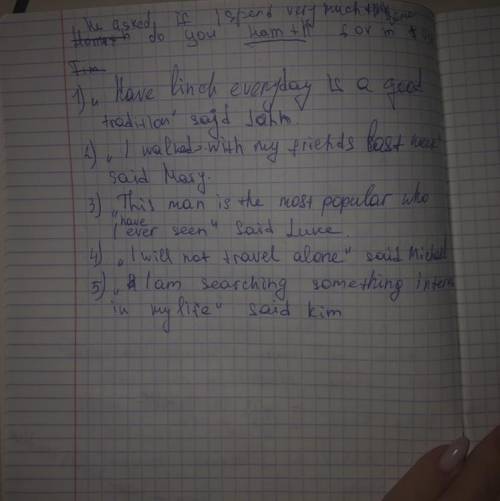 he asked, if I spend very much
do you for m
1) „Have linch everyday is a good
tradition" said John.
2) „I walked with my friends last week"
said Mary.
3) „This man is the most popular who
I have ever seen" said Luke.
4) „I will not travel alone" said Michael
5) „I am searching something inter
in my life" said Kim